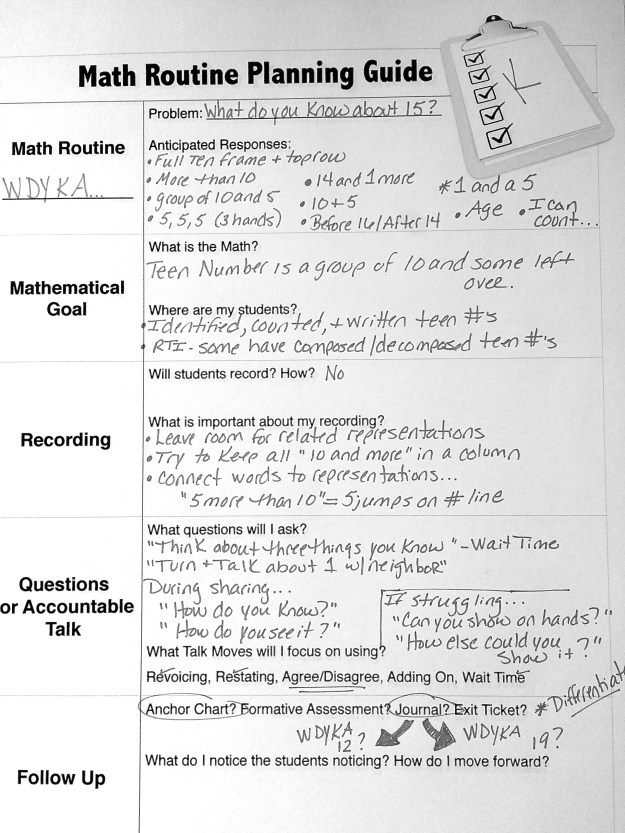 Math Routine Planning Guide
K
Math Routine
WDYKA...
Problem: What do you know about 15?
Anticipated Responses:
• Full Ten frame + top row
• More than 10
• group of 10 and 5
• 5, 5, 5 (3 hands)
• 14 and 1 more
• 10+5
• Before 16/After 14
*1 and a 5
• Age
• I can count...
Mathematical Goal
What is the Math?
Teen Number is a group of 10 and some left
over.
Where are my students?
• Identified, counted, + written teen #'s
• RTI - some have composed/decomposed teen #'s
Recording
Will students record? How? No
What is important about my recording?
• Leave room for related representations
• Try to keep all "10 and more" in a column
• Connect words to representations...
"5 more than 10" = 5 jumps on # line
Questions
or Accountable
Talk
What questions will I ask?
"Think about three things you know" - Wait Time
"Turn + Talk about 1 w/neighbor"
During sharing...
"How do you know?"
"How do you see it?"
If struggling...
"Can you show on hands?"
"How else could you
show it?"
What Talk Moves will I focus on using?
Revoicing, Restating, Agree/Disagree, Adding On, Wait Time
Follow Up
Anchor Chart? Formative Assessment? Journal? Exit Ticket? * Differentiate
WDYKA
12?
WDYKA
19?
What do I notice the students noticing? How do I move forward?